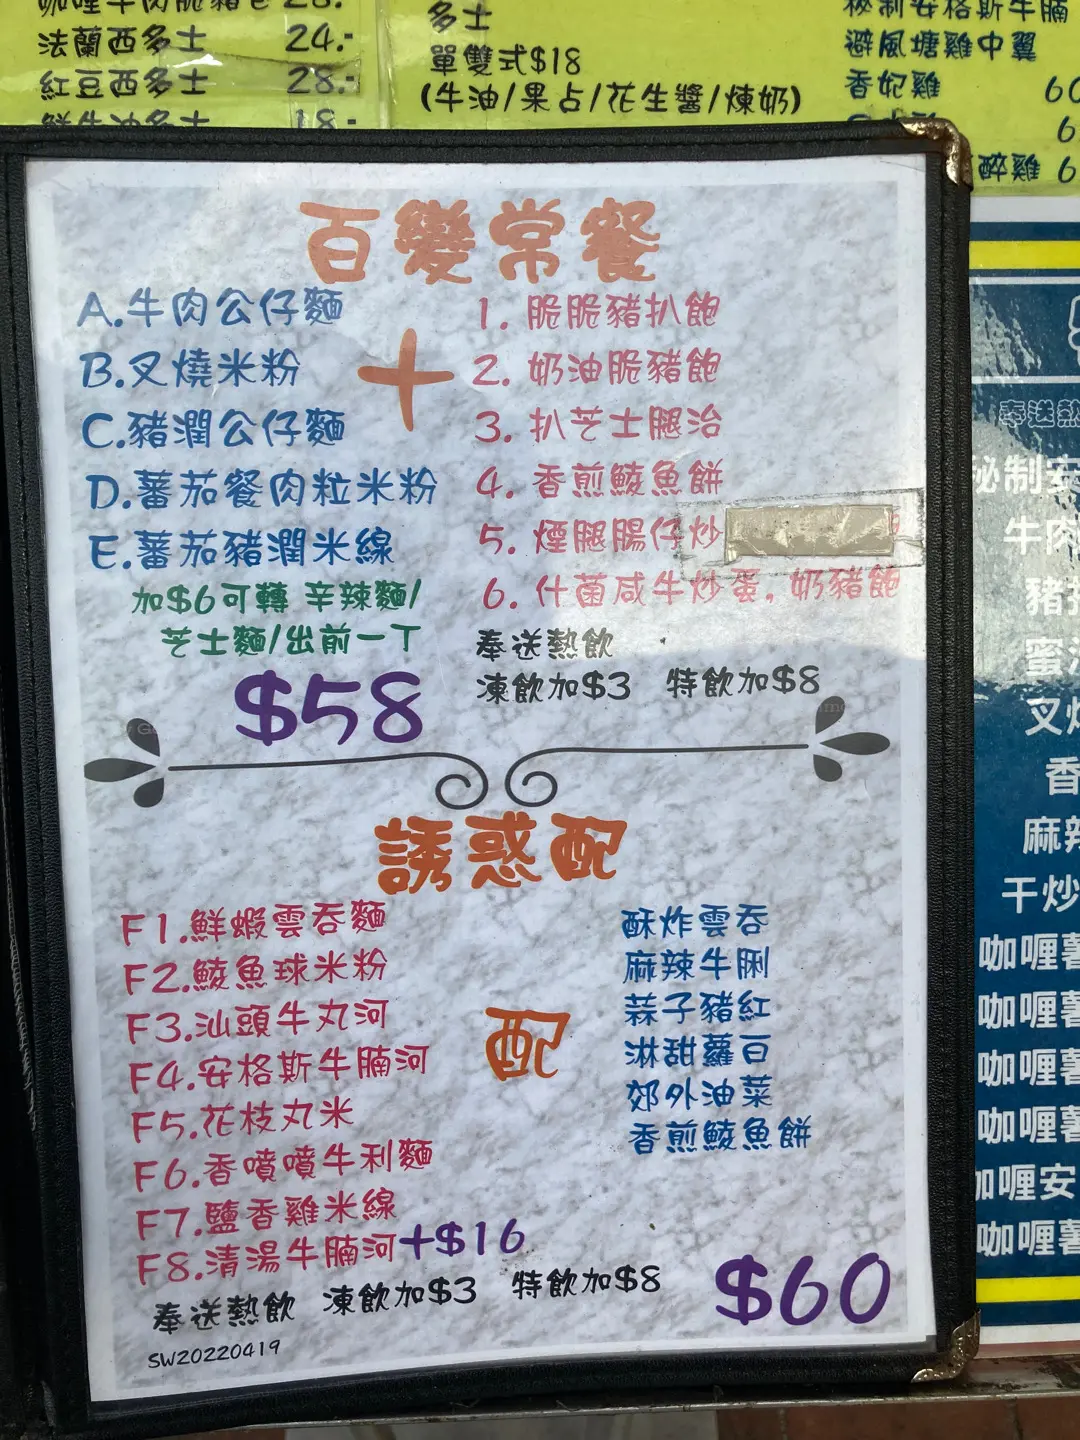 法蘭西多士 24.-
紅豆西多士 28.-
鮮牛油多士 18.-
多士
單雙式$18
(牛油/果占/花生醬/煉奶)
秘制安格斯牛腩
避風塘雞中翼
香妃雞 60
醉雞 6
百變常餐
A.牛肉公仔麵
B.叉燒米粉
C.豬潤公仔麵
D.蕃茄餐肉粒米粉
E.蕃茄豬潤米線
加$6可轉 辛辣麵/
芝士麵/出前一丁
$58
+
1. 脆脆豬扒飽
2. 奶油脆豬飽
3. 扒芝士腿治
4. 香煎鯪魚餅
5. 煙腿腸仔炒
6. 什菌咸牛炒蛋, 奶豬飽
奉送熱飲
凍飲加$3 特飲加$8
誘惑配
F1.鮮蝦雲吞麵
F2.鯪魚球米粉
F3.汕頭牛丸河
F4.安格斯牛腩河
F5.花枝丸米
F6.香噴噴牛利麵
F7.鹽香雞米線
F8.清湯牛腩河+$16
配
酥炸雲吞
麻辣牛脷
蒜子豬紅
淋甜蘿白
郊外油菜
香煎鯪魚餅
奉送熱飲 凍飲加$3 特飲加$8
$60
SW20220419
奉送熱
秘制安
牛肉
豬
蜜
叉
香
麻辣
干炒
咖喱薯
咖喱薯
咖喱薯
咖喱薯
咖喱安
咖喱薯